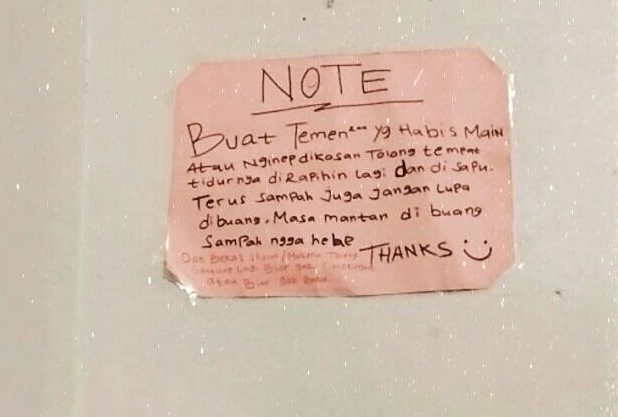 NOTE
Buat Temen" yg Habis Main
Atau Nginep dikosan Tolong tempat
tidurnya diRapihin lagi dan di sapu.
Terus sampah juga jangan lupa
dibuang. Masa mantan di buang
Sampah ngga hehe
THANKS
Dan Bekas
Lagi Biar gak
atau Biar gak